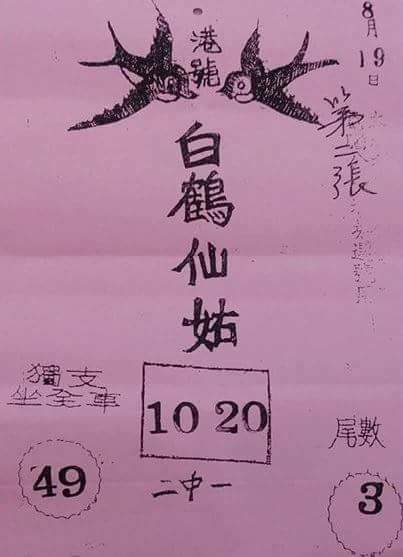 港號
8月19日
第二張
白鶴仙姑
獨支
坐全車
49
10 20
二中一
尾數
3